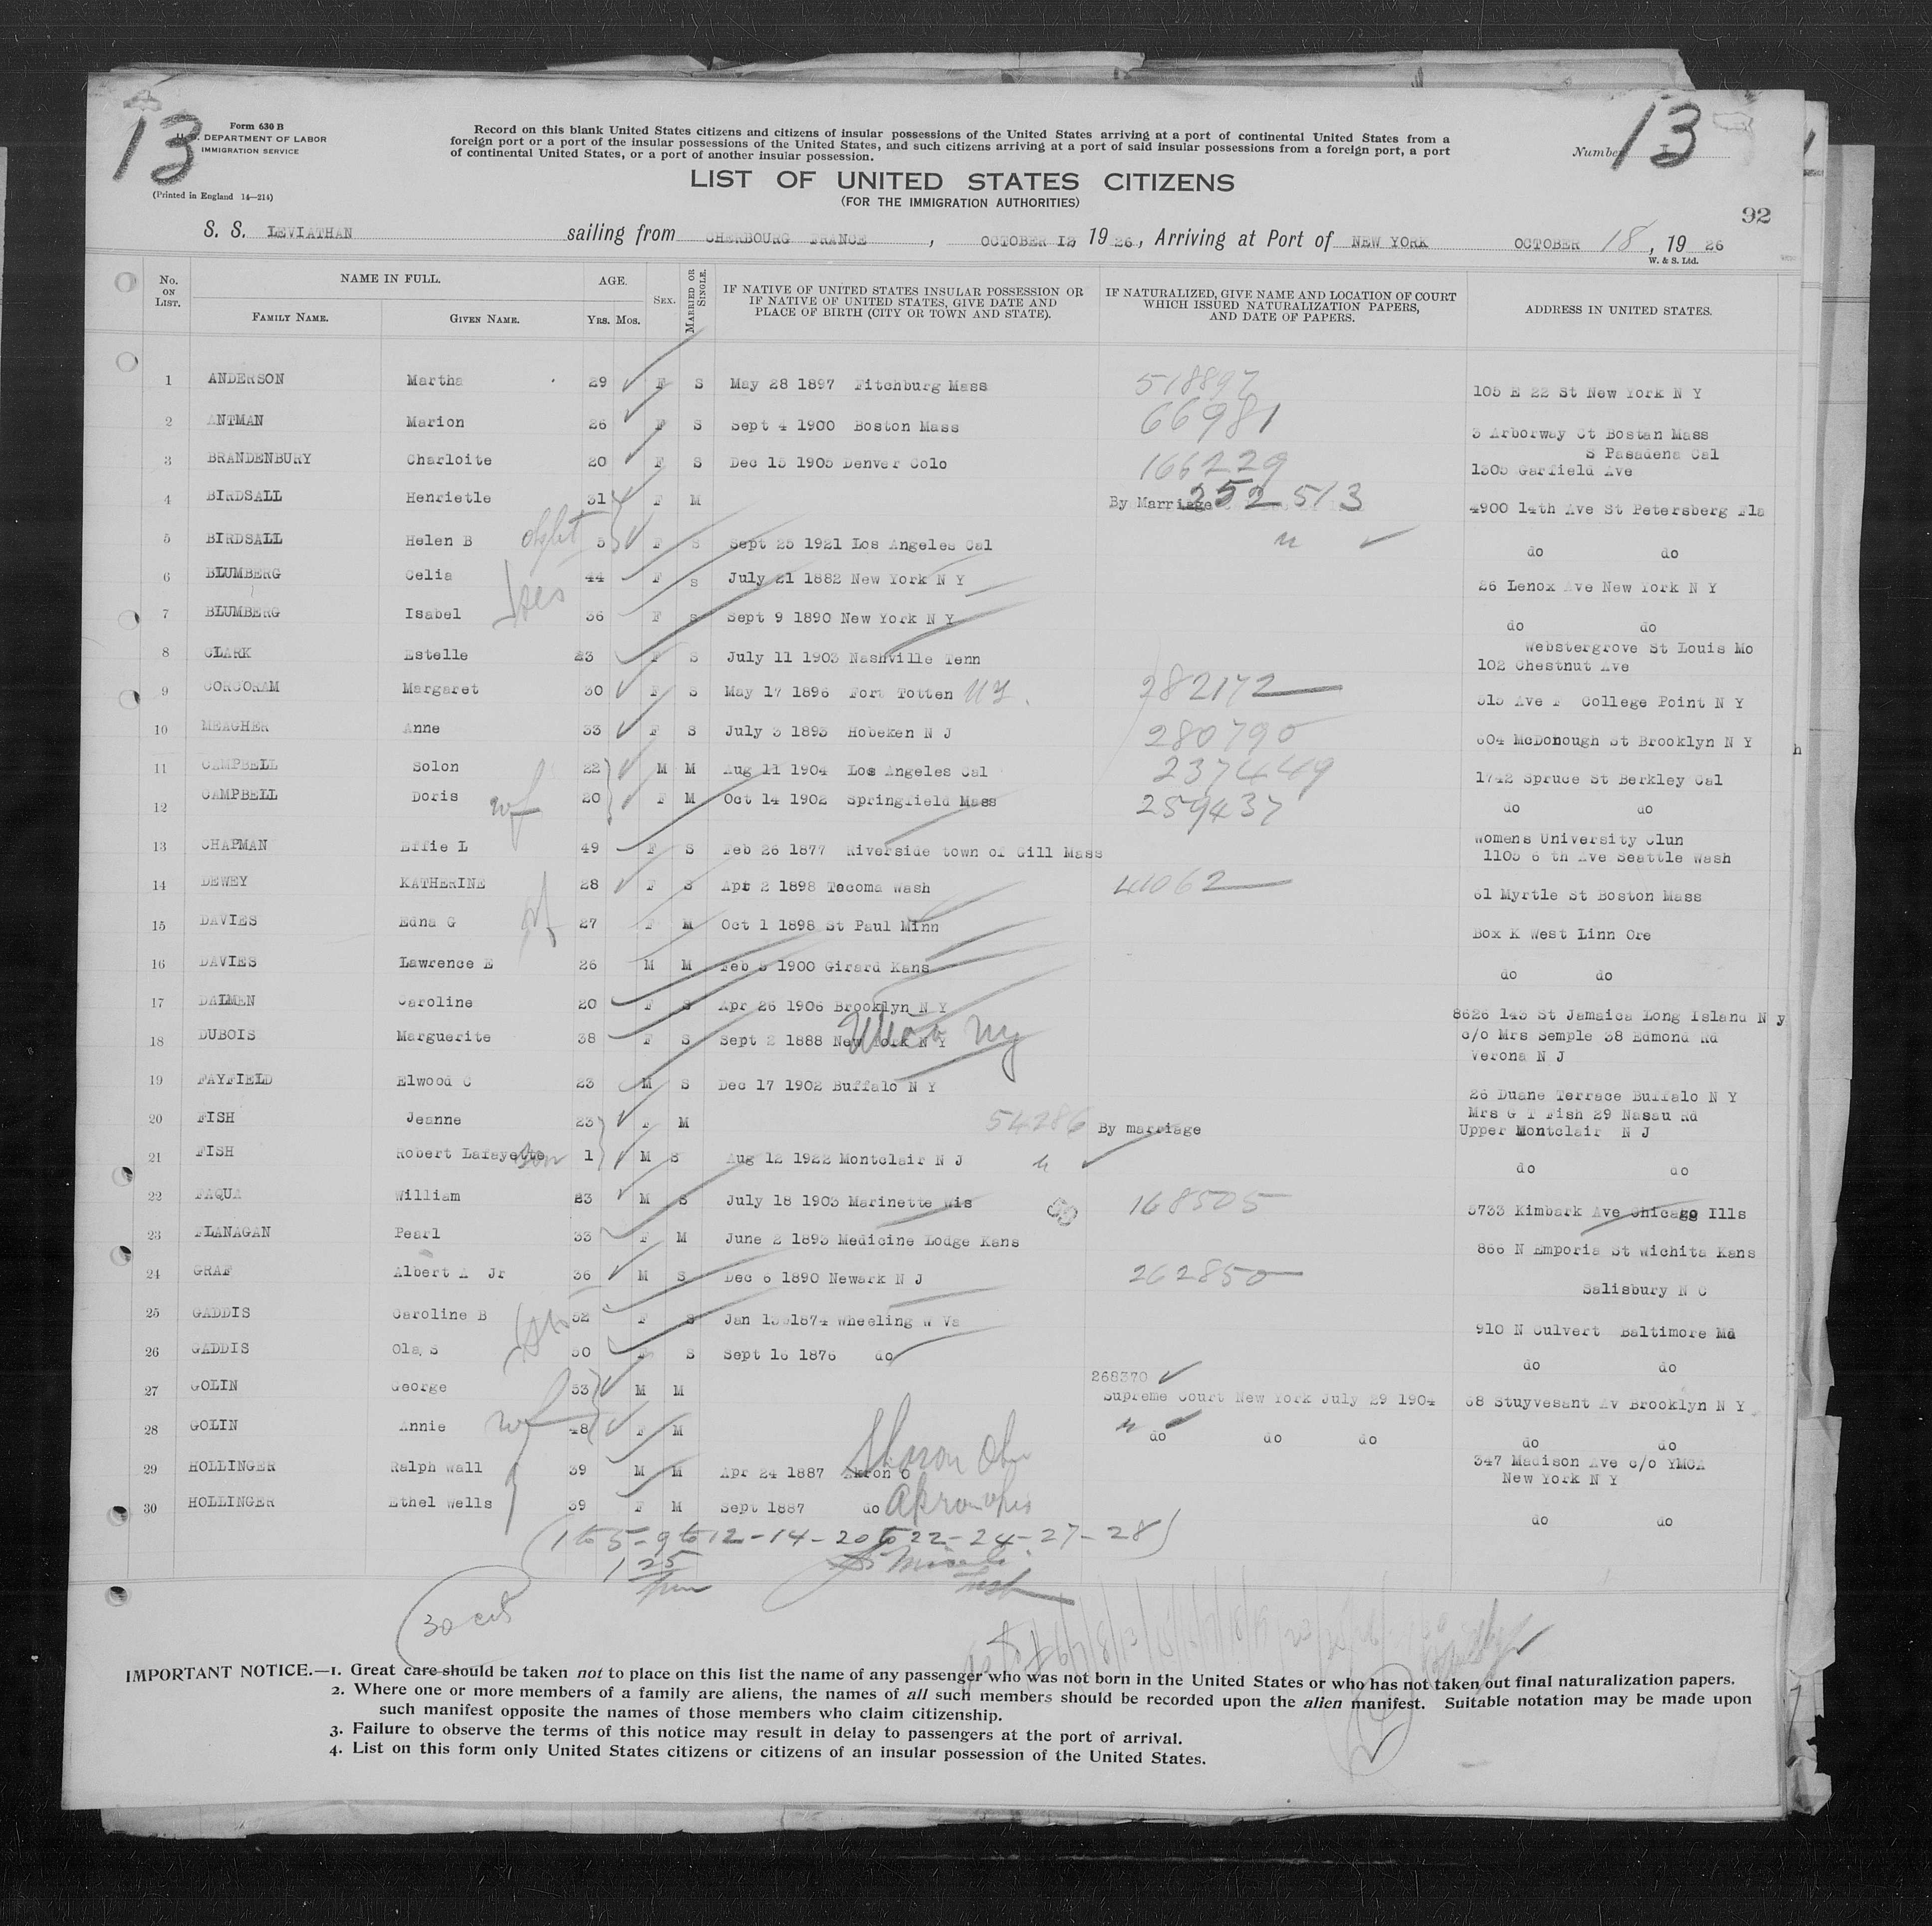 13
Form 630 B
U.S. DEPARTMENT OF LABOR
IMMIGRATION SERVICE
(Printed in England 14—214)
Record on this blank United States citizens and citizens of insular possessions of the United States arriving at a port of continental United States from a
foreign port or a port of the insular possessions of the United States, and such citizens arriving at a port of said insular possessions from a foreign port, a port
of continental United States, or a port of another insular possession.
Number 13
LIST OF UNITED STATES CITIZENS
(FOR THE IMMIGRATION AUTHORITIES)
92
S. S. LEVIATHAN sailing from CHERBOURG FRANCE, OCTOBER 12 1926, Arriving at Port of NEW YORK OCTOBER 18, 1926
W. & S. Ltd.
No. ON LIST. NAME IN FULL. FAMILY NAME. GIVEN NAME. AGE. YRS. MOS. SEX. MARRIED OR SINGLE. IF NATIVE OF UNITED STATES INSULAR POSSESSION OR IF NATIVE OF UNITED STATES, GIVE DATE AND PLACE OF BIRTH (CITY OR TOWN AND STATE). IF NATURALIZED, GIVE NAME AND LOCATION OF COURT WHICH ISSUED NATURALIZATION PAPERS, AND DATE OF PAPERS. ADDRESS IN UNITED STATES.
1 ANDERSON Martha 29 F S May 28 1897 Fitchburg Mass 518897 105 E 22 St New York N Y
2 ANTMAN Marion 26 F S Sept 4 1900 Boston Mass 66981 3 Arborway Ct Bostan Mass
3 BRANDENBURY Charloite 20 F S Dec 15 1905 Denver Colo 166229 S Pasadena Cal 1305 Garfield Ave
4 BIRDSALL Henrietle 31 F M By Marriage 252513 4900 14th Ave St Petersberg Fla
5 BIRDSALL Helen B 5 F S Sept 25 1921 Los Angeles Cal do do
6 BLUMBERG Celia 44 F S July 21 1882 New York N Y 26 Lenox Ave New York N Y
7 BLUMBERG Isabel 36 F S Sept 9 1890 New York N Y do do
8 CLARK Estelle 23 F S July 11 1903 Nashville Tenn Webstergrove St Louis Mo 102 Chestnut Ave
9 CORCORAM Margaret 30 F S May 17 1896 Fort Totten NY. 282172 515 Ave F College Point N Y
10 MEAGHER Anne 33 F S July 3 1893 Hobeken N J 280790 604 McDonough St Brooklyn N Y
11 CAMPBELL Solon 22 M M Aug 11 1904 Los Angeles Cal 237449 1742 Spruce St Berkley Cal
12 CAMPBELL Doris wf 20 F M Oct 14 1902 Springfield Mass 259437 do do
13 CHAPMAN Effie L 49 F S Feb 26 1877 Riverside town of Gill Mass Womens University Clun 1105 6 th Ave Seattle Wash
14 DEWEY KATHERINE 28 F S Apr 2 1898 Tecoma Wash 41062 61 Myrtle St Boston Mass
15 DAVIES Edna G 27 F M Oct 1 1898 St Paul Minn Box K West Linn Ore
16 DAVIES Lawrence E 26 M M Feb 5 1900 Girard Kans do do
17 DALMEN Caroline 20 F S Apr 26 1906 Brooklyn N Y 8626 143 St Jamaica Long Island N y
18 DUBOIS Marguerite 38 F S Sept 2 1888 New York N Y Utica Ny c/o Mrs Semple 38 Edmond Rd Verona N J
19 FAYFIELD Elwood C 23 M S Dec 17 1902 Buffalo N Y 26 Duane Terrace Buffalo N Y
20 FISH Jeanne 23 F M 54286 By marriage Mrs G T Fish 29 Nasau Rd Upper Montclair N J
21 FISH Robert Lafayette son 1 M S Aug 12 1922 Montclair N J do do
22 FAQUA William 23 M S July 18 1903 Marinette Wis 168505 5733 Kimbark Ave Chicago Ills
23 FLANAGAN Pearl 33 F M June 2 1893 Medicine Lodge Kans 866 N Emporia St Wichita Kans
24 GRAF Albert A Jr 36 M S Dec 6 1890 Newark N J 262850 Salisbury N C
25 GADDIS Caroline B 52 F S Jan 13 1874 Wheeling W Va 910 N Culvert Baltimore Md
26 GADDIS Ola S 50 F S Sept 16 1876 do do do
27 GOLIN George 53 M M 268370 Supreme Court New York July 29 1904 68 Stuyvesant Av Brooklyn N Y
28 GOLIN Annie wf 48 F M do do do do do
29 HOLLINGER Ralph Wall 39 M M Apr 24 1887 Akron O Sharon Ohio 347 Madison Ave c/o YMCA New York N Y
30 HOLLINGER Ethel Wells 39 F M Sept 1887 do Akron Ohio do do
(1 to 5-9 to 12-14-20 to 22-24-27-28)
30 cits
IMPORTANT NOTICE.—1. Great care should be taken not to place on this list the name of any passenger who was not born in the United States or who has not taken out final naturalization papers.
2. Where one or more members of a family are aliens, the names of all such members should be recorded upon the alien manifest. Suitable notation may be made upon
such manifest opposite the names of those members who claim citizenship.
3. Failure to observe the terms of this notice may result in delay to passengers at the port of arrival.
4. List on this form only United States citizens or citizens of an insular possession of the United States.